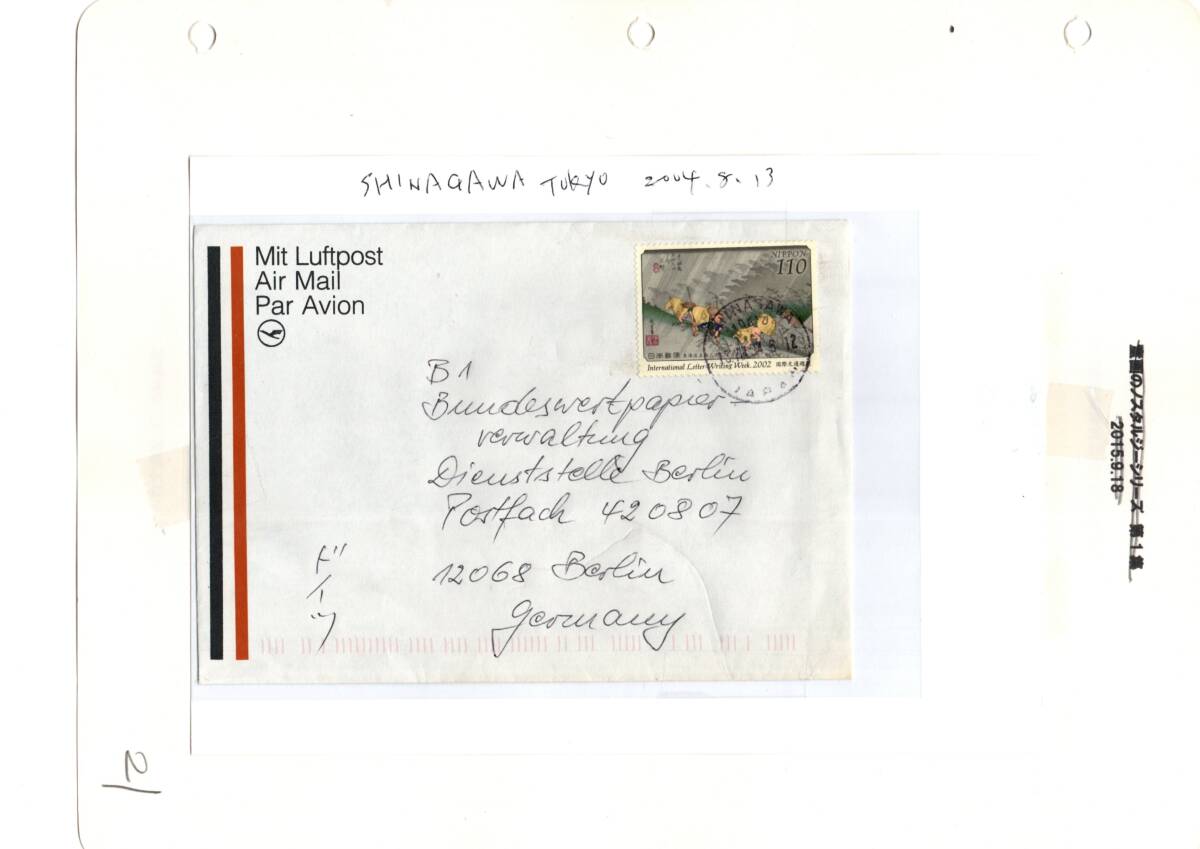 SHINAGAWA TOKYO 2004.8.13
Mit Luftpost
Air Mail
Par Avion
NIPPON
110
日本郵便
International Letter-Writing Week. 2002 国際文通週間
SHINAGAWA
JAPAN
B1
Bundeswertpapier-
verwaltung
Dienststelle Berlin
Postfach 420807
12068 Berlin
Germany
ドイツ
のノスタルジーシリーズ 第1集
2015.9.18
2